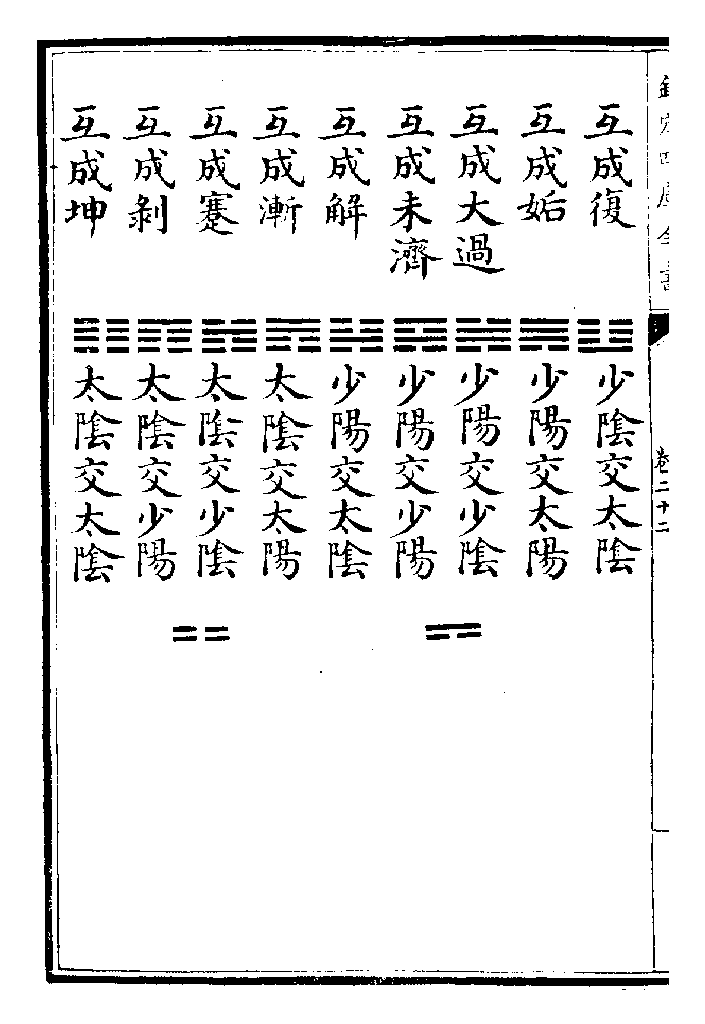 欽定四庫全書
卷二十二
互成復
少陰交太陰
互成姤
少陽交太陽
互成大過
少陽交少陰
互成未濟
少陽交少陽
互成解
少陽交太陰
互成漸
太陰交太陽
互成蹇
太陰交少陰
互成剝
太陰交少陽
互成坤
太陰交太陰